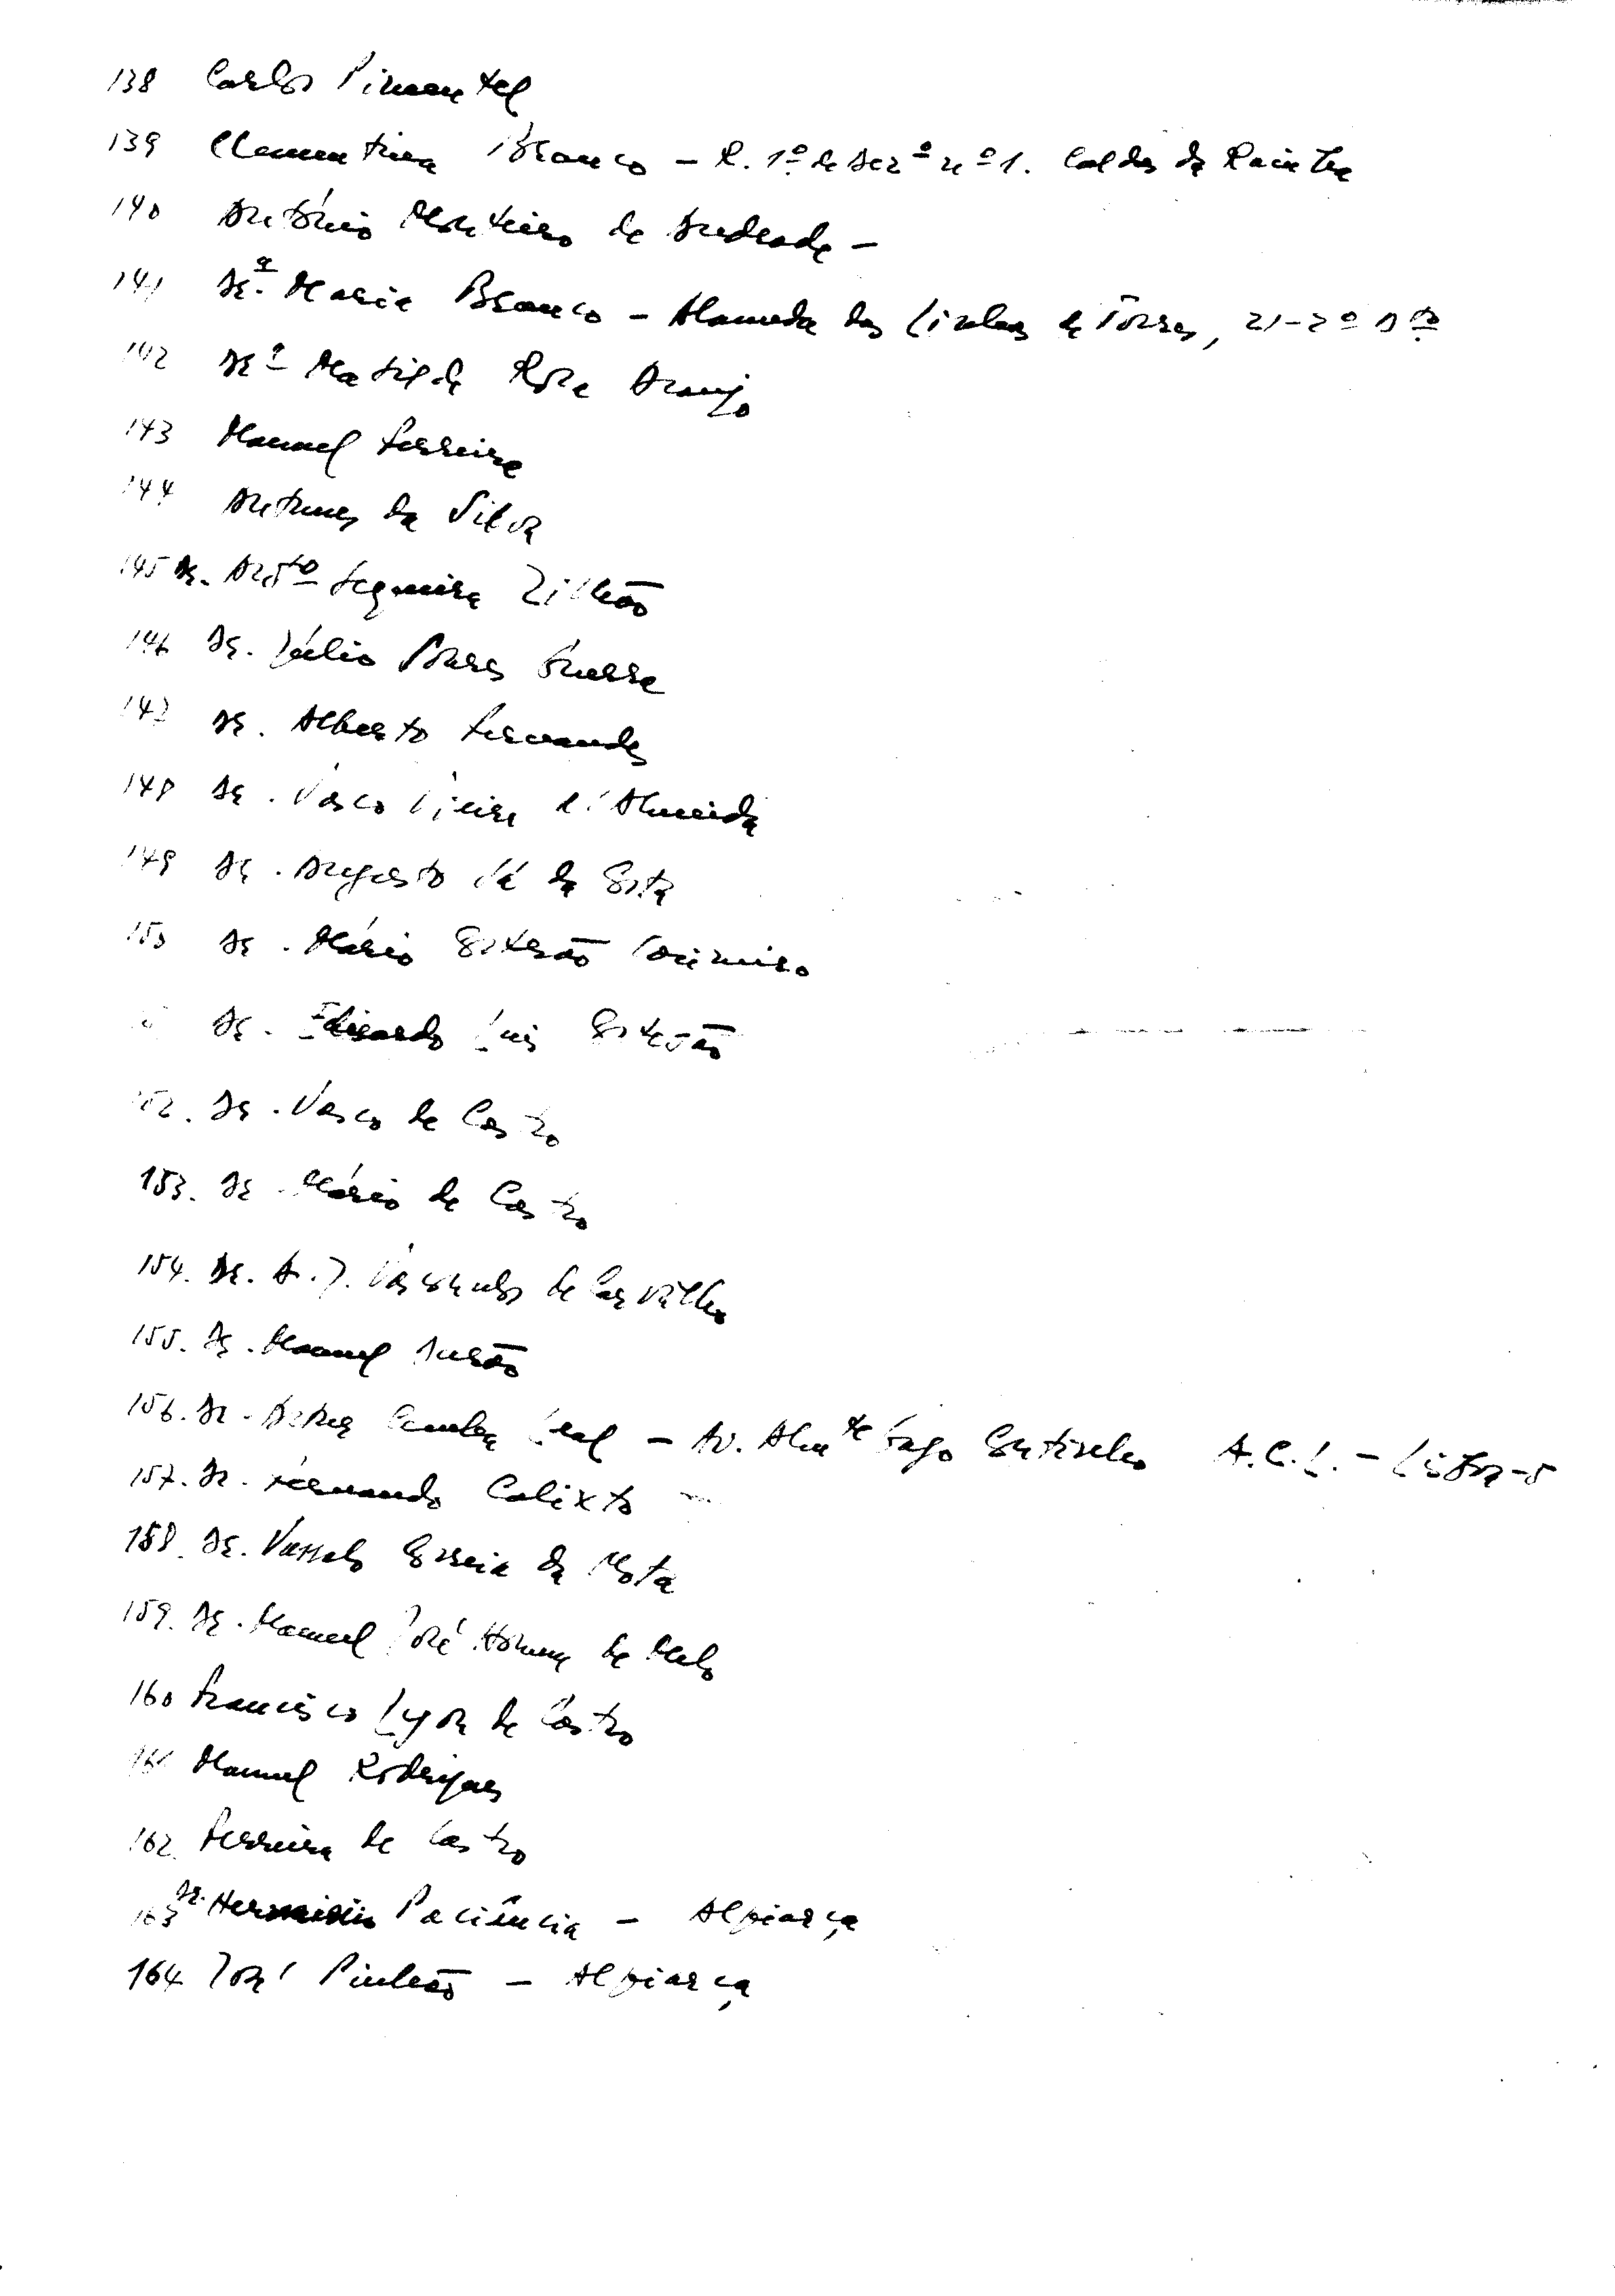 138 Carlos Pimentel
139 Clementina Branco - R. 1º de Dezº nº 1. Caldas da Rainha
140 António Monteiro de Andrade -
141 Drª Maria Branco - Alameda das Linhas de Torres, 21-2º Dto
142 Drª Matilde Rosa Araujo
143 Manuel Ferreira
144 Antunes da Silva
145 Dr. Antº Sequeira Zilhão
146 Dr. Júlio Guerra
147 Dr. Alberto Fernandes
148 Dr. Vasco Vieira d'Almeida
149 Dr. Augusto Sá da Costa
150 Dr. Mário Casimiro
Dr. Eduardo Luis
152. Dr. Vasco de Castro
153. Dr. Mário de Castro
154. Dr. A. J. Vasconcelos de Carvalho
155. Dr. Manuel
156. Dr. Artur Cunha Leal - Av. Almte Gago Coutinho A.C.L. - Lisboa-5
157. Dr. Fernando Calixto
158. Dr. Vassalo Correia da Mota
159. Dr. Manuel José Homem de Melo
160 Francisco Lyon de Castro
161 Manuel Rodrigues
162. Ferreira de Castro
163 Dr. Herminio Paciência - Alpiarça
164 José Pinhão - Alpiarça